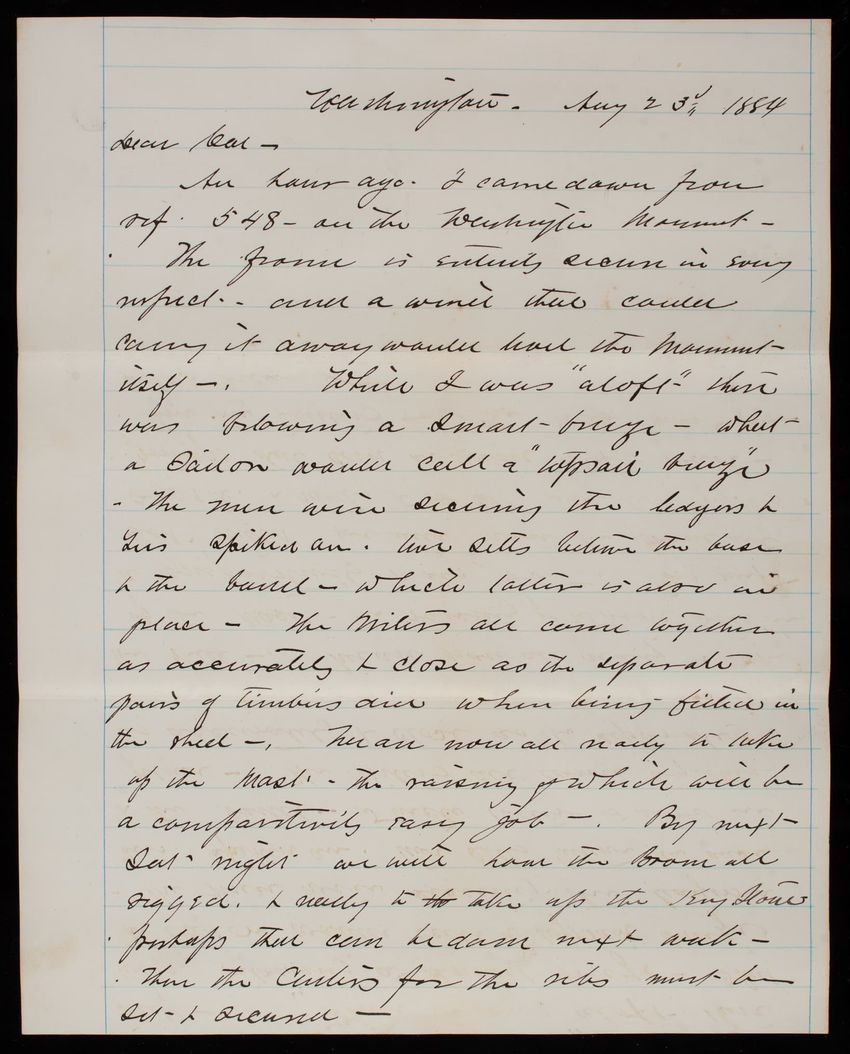 Washington. Aug 23d 1884
Dear Col —
An hour ago. I came down from
ref. 548 - on the Washington Monument -
The frame is entirely secure in every
respect. - and a wind that could
carry it away would level the Monument
itself —. While I was "aloft" there
was blowing a smart breeze - what
a Sailor would call a "topsail breeze"
- The men were securing the ledgers &
ties spiked on. two setts below the base
& the barrel - which latter is also in
place - The Miters all come together
as accurately & close as the separate
pairs of timbers did when being fitted in
the shed —. We are now all ready to take
up the Mast. - the raising of which will be
a comparitively easy job —. By next
Sat night we will have the Boom all
rigged. & ready to take up the Key Stone
perhaps that can be done next week -
Then the Centers for the ribs must be
set & secured —